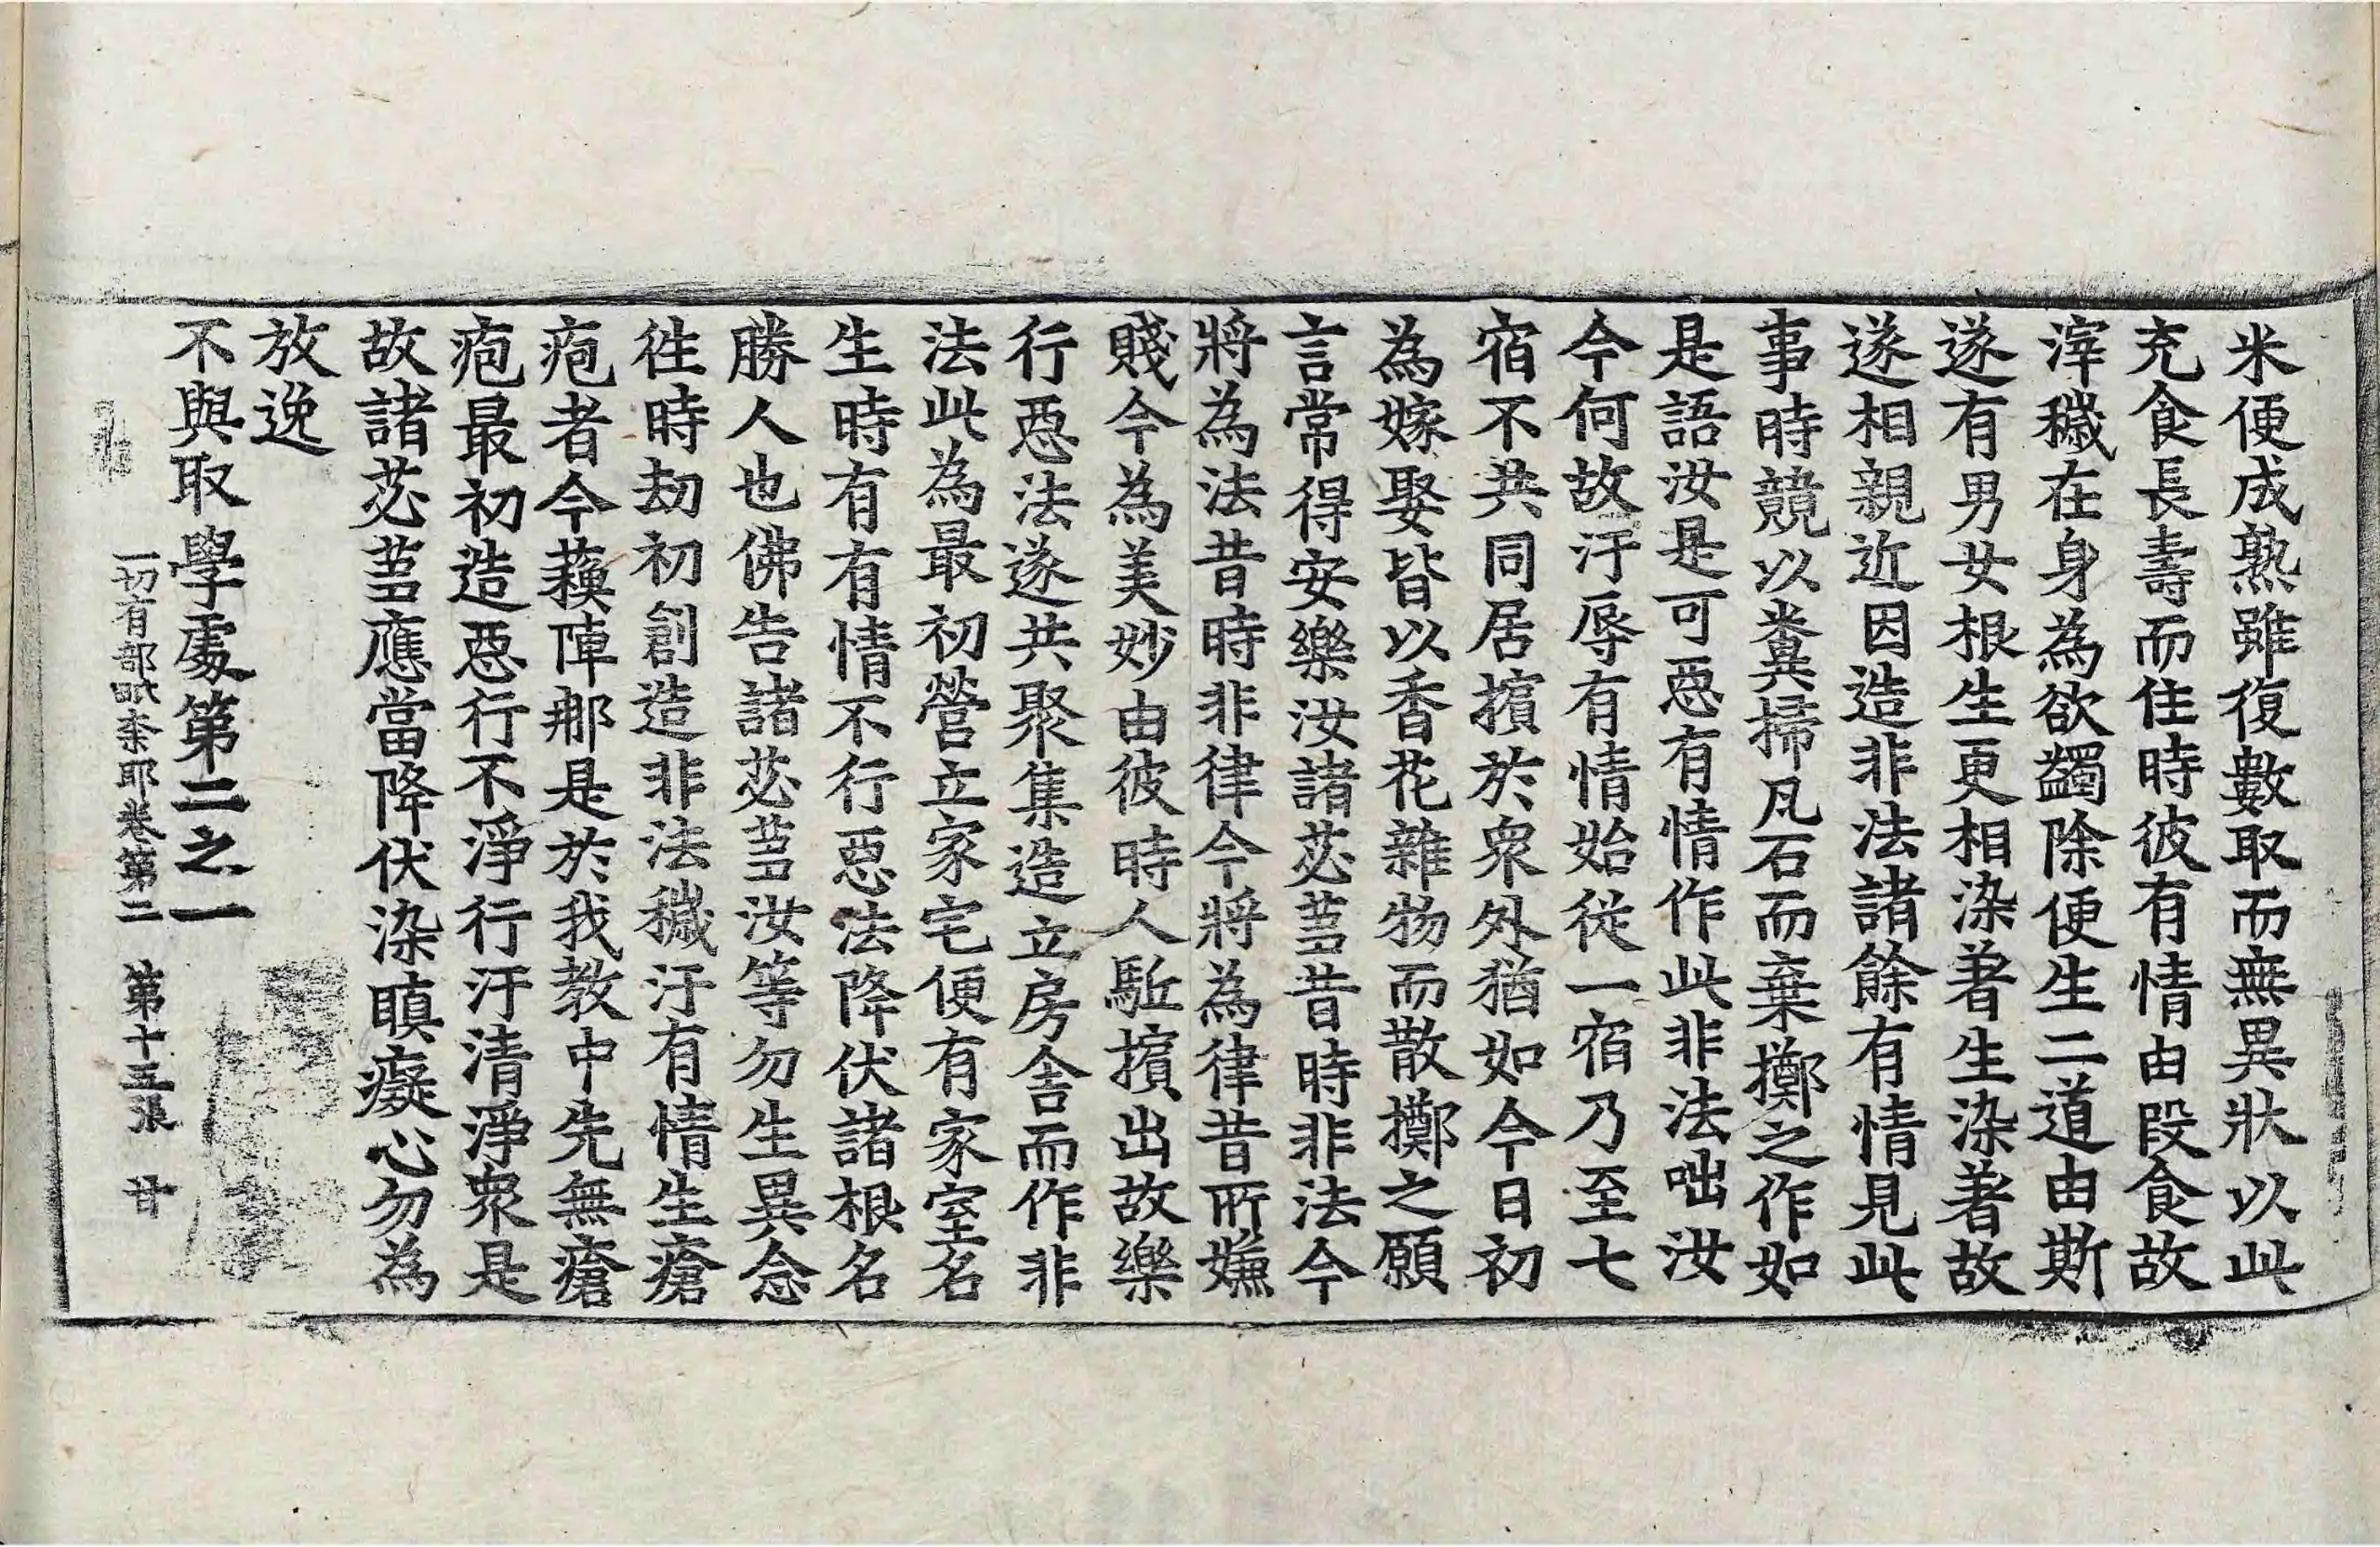 米便成熟雖復數取而無異狀以此
充食長壽而住時彼有情由段食故
滓穢在身為欲蠲除便生二道由斯
遂有男女根生更相染著生染著故
遂相親近因造非法諸餘有情見此
事時競以糞掃凡石而棄擲之作如
是語汝是可惡有情作此非法咄汝
今何故汙辱有情始從一宿乃至七
宿不共同居擯於衆外猶如今日初
為嫁娶皆以香花雜物而散擲之願
言常得安樂汝諸苾蒭昔時非法今
將為法昔時非律今將為律昔所嫌
賤今為美妙由彼時人駈擯出故樂
行惡法遂共聚集造立房舍而作非
法此為最初營立家宅便有家室名
生時有有情不行惡法降伏諸根名
勝人也佛告諸苾蒭汝等勿生異念
徃時劫初創造非法穢汙有情生瘡
疱者今蘓陣那是於我教中先無瘡
疱最初造惡行不淨行汙清淨衆是
故諸苾蒭應當降伏染瞋癡心勿為
放逸
不與取學處第二之一
一切有部毗柰耶卷第二 第十五張 甘